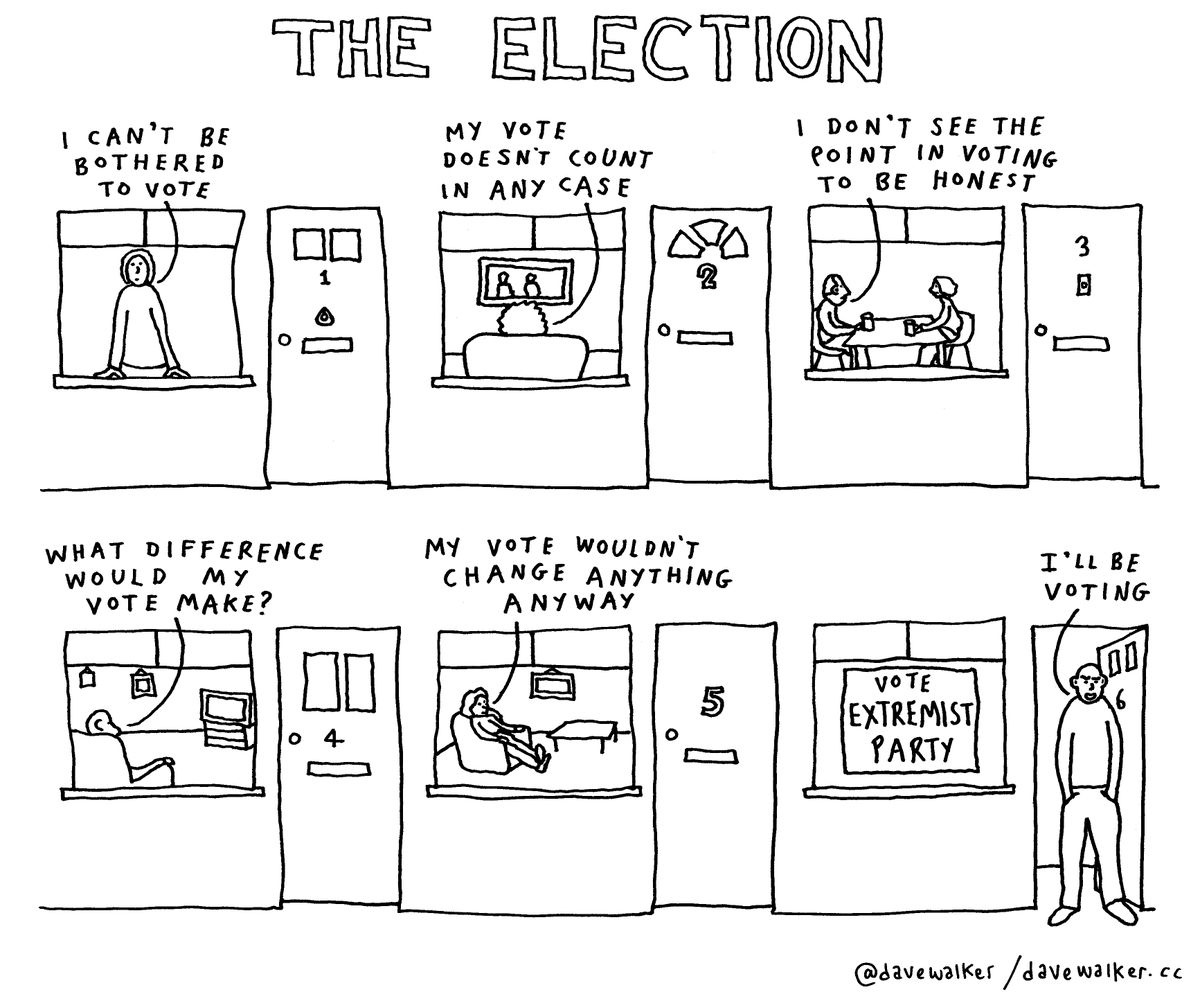 THE ELECTION
I CAN'T BE
BOTHERED
TO VOTE
MY VOTE
DOESN'T COUNT
IN ANY CASE
I DON'T SEE THE
POINT IN VOTING
TO BE HONEST
1
2
3
WHAT DIFFERENCE
WOULD MY
VOTE MAKE?
MY VOTE WOULDN'T
CHANGE ANYTHING
ANYWAY
I'LL BE
VOTING
4
5
VOTE
EXTREMIST
PARTY
6
@davewalker / davewalker.cc